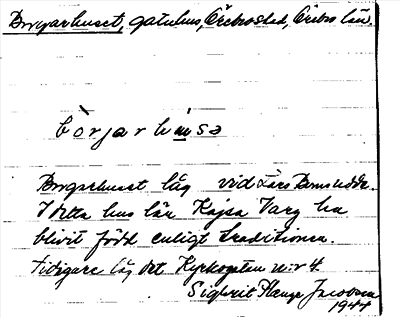 Borgarhuset, gatuhus, Örebro stad, Örebro län.
bòrjarhu̇sə
Borgarhuset låg vid Lars
I detta hus lär Kajsa Varg ha
blivit född enligt traditionen.
Tidigare låg det Kyrkogatan n:r 4.
Sigbrit Plenge Jacobson
1944